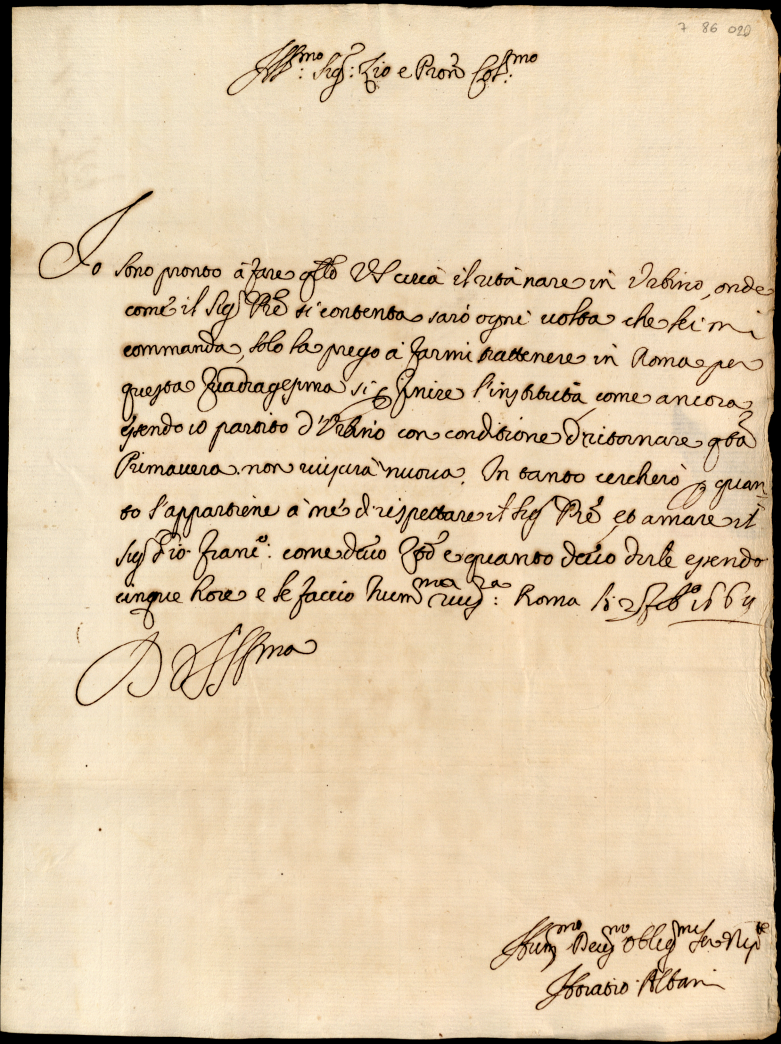 7 86 020
Ill.mo Sig.r Zio e Pron Col.mo
Io sono pronto à fare qto VS circa il ritornare in Urbino, onde
come il Sig Pre si contenta sarò ogni volta che lei mi
commanda, solo la prego à farmi trattenere in Roma per
questa Quadragesima si finire l'instituta come ancora
essendo io partito d'Urbino con conditione di ritornare qta
Primavera non nuova. In tanto cercherò p quan
to s'appartiene à me di rispettare il Sig Pre et amare il
Sig Zio Franc.o: come devo e quanto devo dirle essendo
cinque hore e le faccio hum.ma riv.za: Roma li 2 Feb.o 1664
D VS Ill.ma
Hum.mo Dev.mo Oblig.mo Ser e Nip.te
Horatio Albani